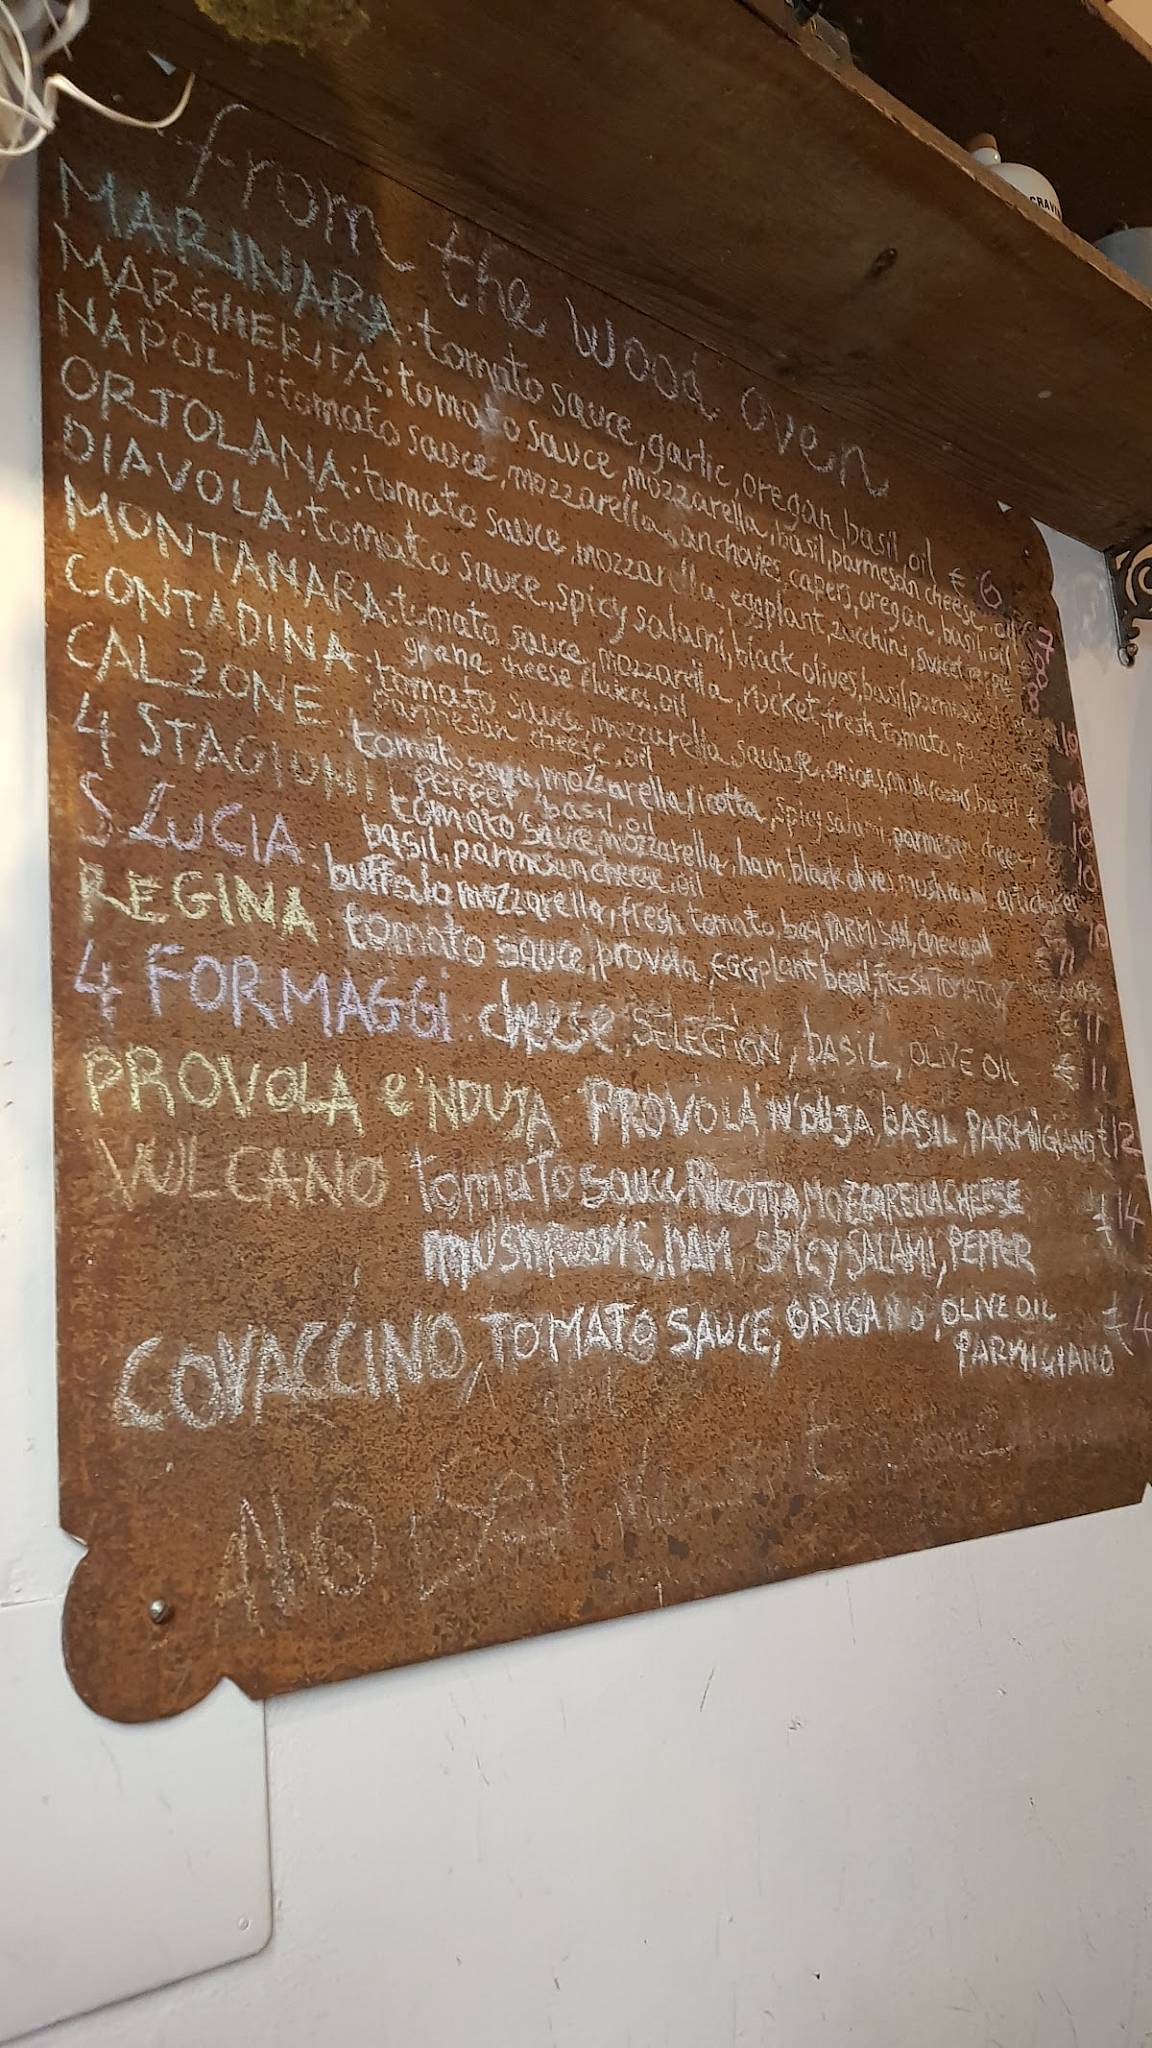 from the wood oven
MARINARA: tomato sauce, garlic, oregan, basil, oil € 6
MARGHERITA: tomato sauce, mozzarella, basil, parmesan cheese, oil
NAPOLI: tomato sauce, mozzarella, anchovies, capers, oregan, basil, oil
ORTOLANA: tomato sauce, mozzarella, eggplant, zucchini, sweet
DIAVOLA: tomato sauce, spicy salami, black olives, basil,
MONTANARA: tomato sauce, mozzarella, rocket, fresh tomato,
grana cheese flakes, oil
CONTADINA: tomato sauce, mozzarella, sausage, onions, mushrooms, basil
parmesan cheese, oil
CALZONE tomato sauce, mozzarella, ricotta, spicy salami, parmesan cheese
pepper, basil, oil
4 STAGIONI tomato sauce, mozzarella, ham, black olives, mushrooms,
basil, parmesan cheese, oil
S. LUCIA: buffalo mozzarella, fresh tomato, PARMISAN, cheese, oil
REGINA: tomato sauce, provola, EGGplant basil, FRESH TOMATO € 11
4 FORMAGGi: cheese SELECTION, bASiL, OLIVE OIL € 11
PROVOLA e 'NDUJA PROVOLA, N'DUJA, bASiL, PARMiGIANO € 12
VULCANO tomato sauce RICOTTA, MOZZARELLA CHEESE € 14
MUSHROOMS, HAM, SPICY SALAMI, PEPPER
COVACCINO, TOMATO SAUCE, ORIGANO, OLIVE OIL € 4
PARMIGIANO
CRAVI